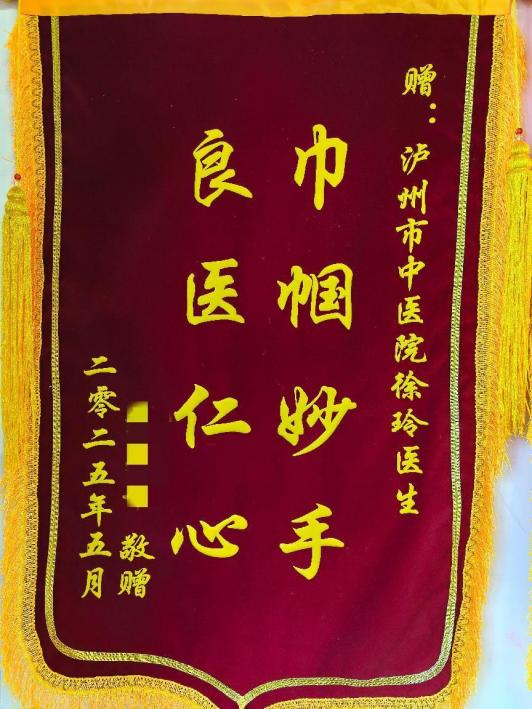 赠：泸州市中医院徐玲医生
巾帼妙手
良医仁心
敬赠
二零二五年五月